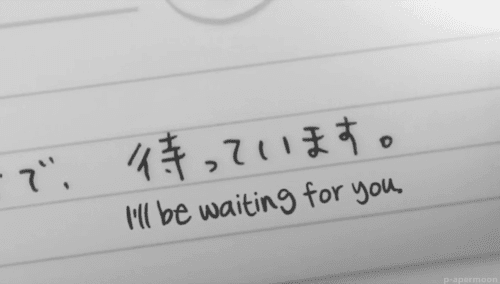 で、 待っています。
I'll be waiting for you.
p-apermoon